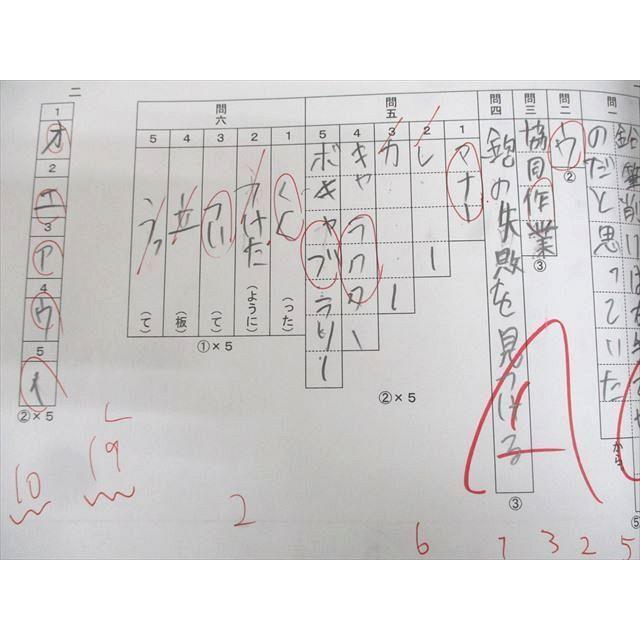 問一
のだと思っていた
から
⑤
問二
ウ
②
問三
協同作業
③
問四
鉋の失敗を見つける
③
問五
1
マナー
2
レ ー
3
カ ー
4
キャラクター
5
ボキャブラリー
②×5
問六
1
(った)
2
つけた
(ように)
3
(て)
4
立
(板)
5
うっ
(て)
①×5
二
1
オ
2
エ
3
ア
4
ウ
5
イ
②×5
10
19
2
6
1
3
2
5